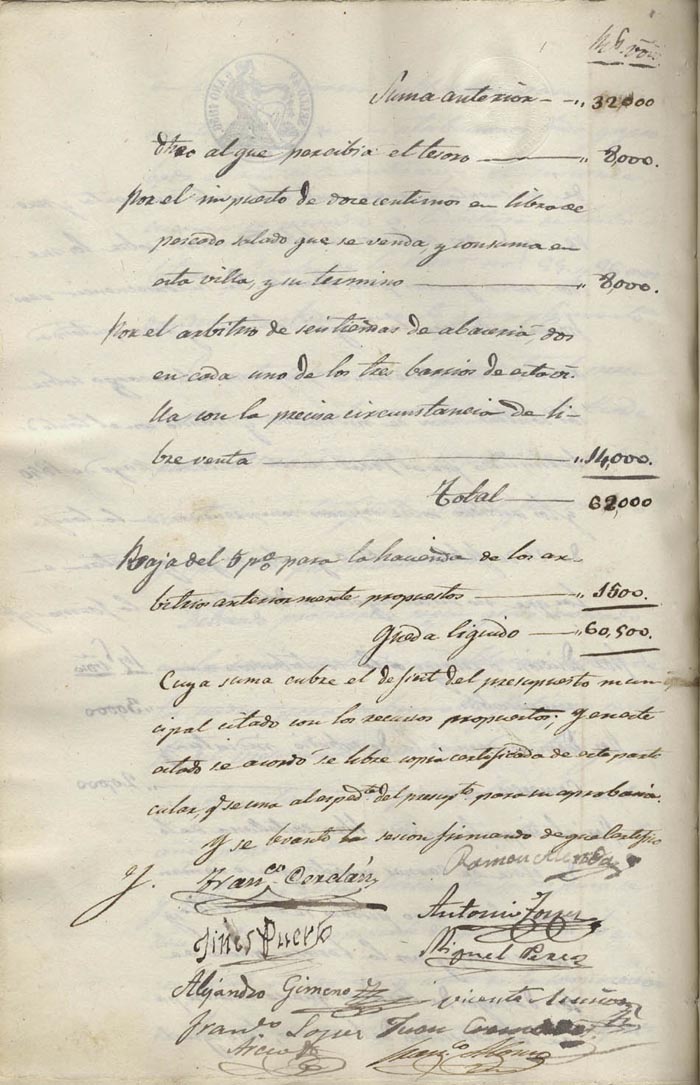 Suma anterior — „ 32000
al que percibia el tesoro — „ 8,000.
Por el impuesto de doce centimos en libra de
pescado salado que se venda, y consuma en
esta villa, y su termino — „ 8,000.
Por el arbitrio de seis tiendas de abaceria, dos
en cada uno de los tres barrios de esta vi-
lla con la precisa circunstancia de li-
bre venta — „ 14,000.
Total — 62,000
Baja del 5 p% para la hacienda de los ar-
bitrios anteriormente propuestos — „ 1500.
Queda liquido — „ 60,500.
Cuya suma cubre el deficit del presupuesto muni-
cipal citado con los recursos propuestos; y en este
estado se acordó se libre copia certificada de este parti-
cular, q.e se una al esped.te del presup.to para su aprobacion.
Y se levantó la sesion firmando de que certifico
Ramon
Fran.co Cerdán
Antonio Torres
Gines Puerto
Miguel Perez
Alejandro Gimeno
Vicente
Fran.do Lopez Juan